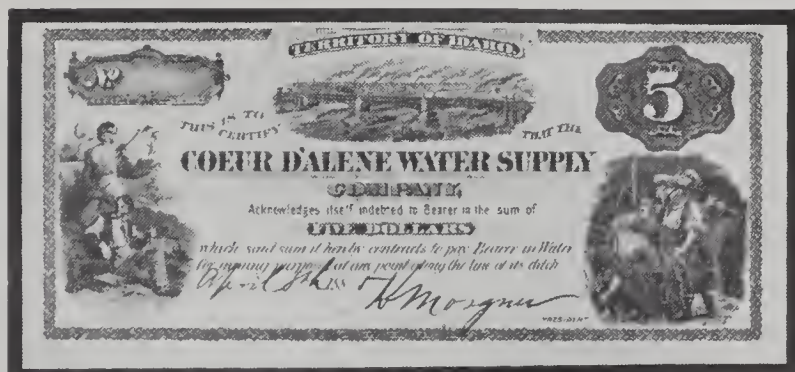 TERRITORY OF IDAHO.
No
5
THIS IS TO CERTIFY THAT THE
COEUR D'ALENE WATER SUPPLY
COMPANY,
Acknowledges itself indebted to Bearer in the sum of
FIVE DOLLARS
which said sum it hereby contracts to pay Bearer in Water
for mining purposes at any point along the line of its ditch
April 188
PRESIDENT